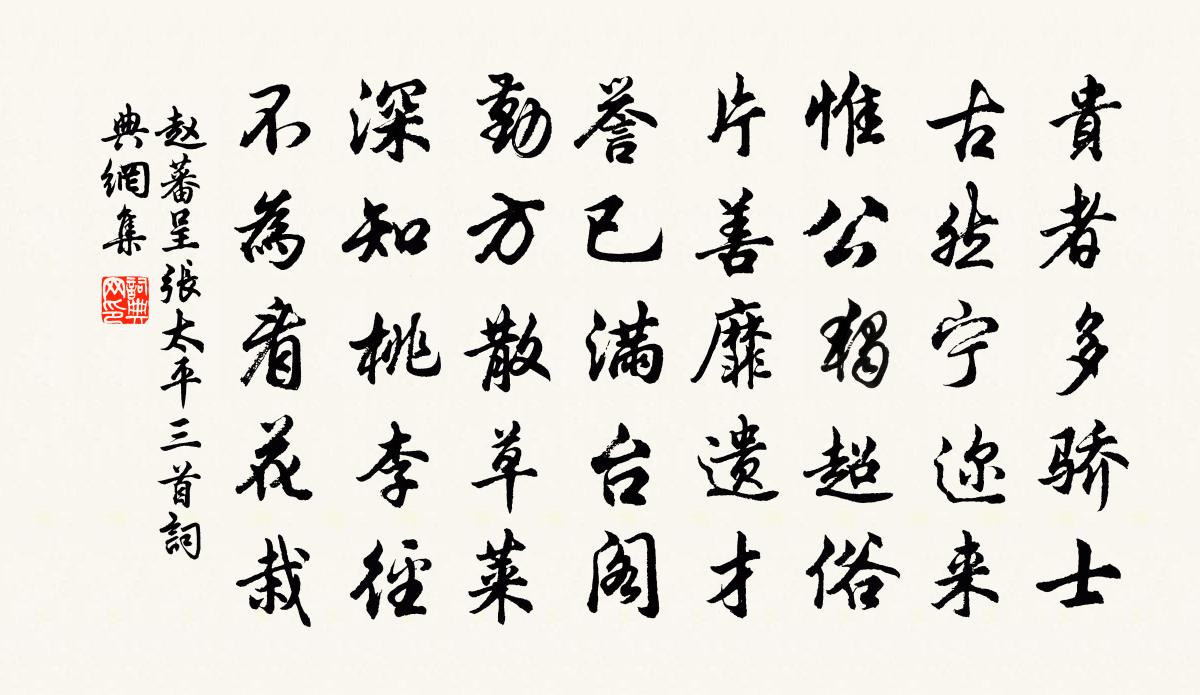 貴者多骄士
古然宁迩来
惟公獨超俗
片善靡遗才
誉已满台阁
勤方散草莱
深知桃李径
不為看花栽
赵蕃呈張太平三首詞
典網集
詞典
网印